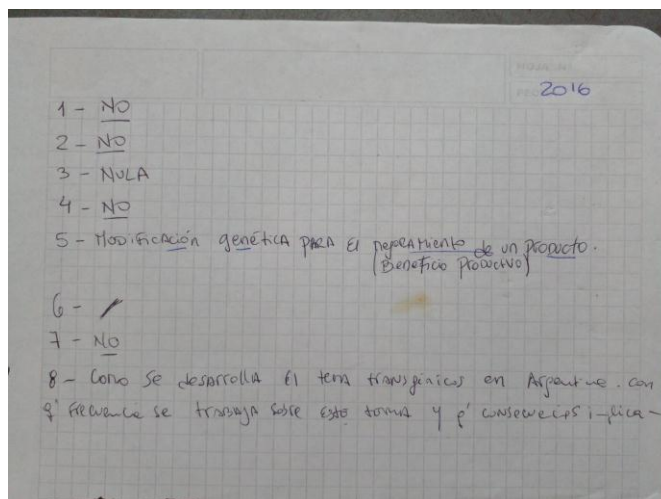 2016
1 - NO
2 - NO
3 - NULA
4 - NO
5 - Modificación genética para el mejoramiento de un producto.
(Beneficio productivo)
6 -
7 - NO
8 - Como se desarrolla el tema transgénicos en Argentina. con
q' frecuencia se trabaja sobre este tema y q' consecuencias implica -